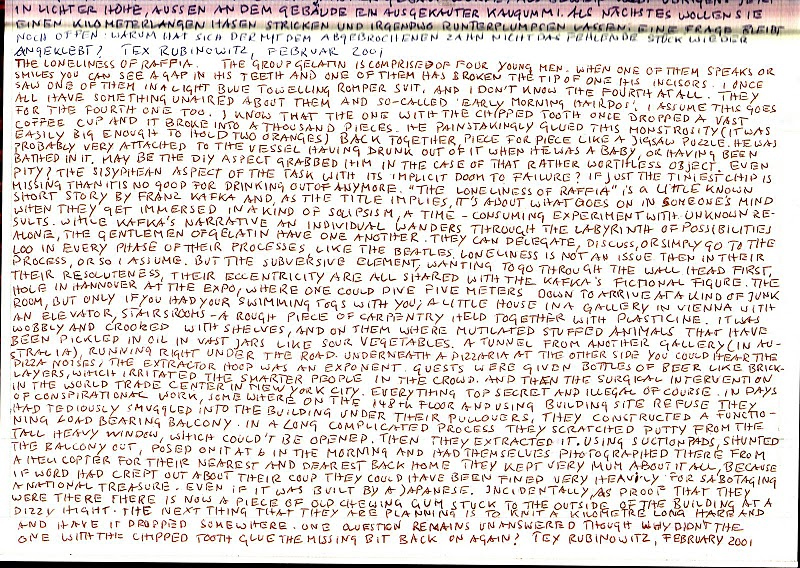 IN LICHTER HÖHE, AUSSEN AN DEM GEBÄUDE EIN AUSGEKAUTER KAUGUMMI. ALS NÄCHSTES WOLLEN SIE
EINEN KILOMETERLANGEN HASEN STRICKEN UND IRGENDWO RUNTERPLUMPSEN LASSEN. EINE FRAGE BLEIBT
NOCH OFFEN: WARUM HAT SICH DER MIT DEM ABGEBROCHENEN ZAHN NICHT DAS FEHLENDE STÜCK WIEDER
ANGEKLEBT? TEX RUBINOWITZ, FEBRUAR 2001
THE LONELINESS OF RAFFIA. THE GROUP GELATIN IS COMPRISED OF FOUR YOUNG MEN. WHEN ONE OF THEM SPEAKS OR
SMILES YOU CAN SEE A GAP IN HIS TEETH AND ONE OF THEM HAS BROKEN THE TIP OF ONE HIS INCISORS. I ONCE
SAW ONE OF THEM IN A LIGHT BLUE TOWELLING ROMPER SUIT, AND I DON'T KNOW THE FOURTH AT ALL. THEY
ALL HAVE SOMETHING UNAIRED ABOUT THEM AND SO-CALLED 'EARLY MORNING HAIRDOS'. I ASSUME THIS GOES
FOR THE FOURTH ONE TOO. I KNOW THAT THE ONE WITH THE CHIPPED TOOTH ONCE DROPPED A VAST
COFFEE CUP AND IT BROKE INTO A THOUSAND PIECES. HE PAINSTAKINGLY GLUED THIS MONSTROSITY (IT WAS
EASILY BIG ENOUGH TO HOLD TWO ORANGES) BACK TOGETHER, PIECE FOR PIECE LIKE A JIGSAW PUZZLE. HE WAS
PROBABLY VERY ATTACHED TO THE VESSEL HAVING DRUNK OUT OF IT WHEN HE WAS A BABY, OR HAVING BEEN
BATHED IN IT. MAY BE THE DIY ASPECT GRABBED HIM IN THE CASE OF THAT RATHER WORTHLESS OBJECT. EVEN
PITY? THE SISYPHEAN ASPECT OF THE TASK WITH ITS IMPLICIT DOOM TO FAILURE? IF JUST THE TINIEST CHIP IS
MISSING THAN IT IS NO GOOD FOR DRINKING OUT OF ANYMORE. "THE LONELINESS OF RAFFIA" IS A LITTLE KNOWN
SHORT STORY BY FRANZ KAFKA AND, AS THE TITLE IMPLIES, IT'S ABOUT WHAT GOES ON IN SOMEONE'S MIND
WHEN THEY GET IMMERSED IN A KIND OF SOLIPSISM, A TIME-CONSUMING EXPERIMENT WITH UNKNOWN RE-
SULTS. WHILE KAFKA'S NARRATIVE AN INDIVIDUAL WANDERS THROUGH THE LABYRINTH OF POSSIBILITIES
ALONE, THE GENTLEMEN OF GELATIN HAVE ONE ANOTHER. THEY CAN DELEGATE, DISCUSS, OR SIMPLY GO TO THE
LOO IN EVERY PHASE OF THEIR PROCESSES LIKE THE BEATLES. LONELINESS IS NOT AN ISSUE THEN IN THEIR
PROCESS, OR SO I ASSUME. BUT THE SUBVERSIVE ELEMENT, WANTING TO GO THROUGH THE WALL HEAD FIRST,
THEIR RESOLUTENESS, THEIR ECCENTRICITY ARE ALL SHARED WITH THE KAFKA'S FICTIONAL FIGURE. THE
HOLE IN HANNOVER AT THE EXPO, WHERE ONE COULD DIVE FIVE METERS DOWN TO ARRIVE AT A KIND OF JUNK
ROOM, BUT ONLY IF YOU HAD YOUR SWIMMING TOGS WITH YOU; A LITTLE HOUSE IN A GALLERY IN VIENNA WITH
AN ELEVATOR, STAIRS ROOMS - A ROUGH PIECE OF CARPENTRY HELD TOGETHER WITH PLASTICINE. IT WAS
WOBBLY AND CROOKED WITH SHELVES, AND ON THEM WHERE MUTILATED STUFFED ANIMALS THAT HAVE
BEEN PICKLED IN OIL IN VAST JARS LIKE SOUR VEGETABLES. A TUNNEL FROM ANOTHER GALLERY (IN AU-
STRALIA), RUNNING RIGHT UNDER THE ROAD. UNDERNEATH A PIZZARIA AT THE OTHER SIDE YOU COULD HEAR THE
PIZZA NOISES; THE EXTRACTOR HOOP WAS AN EXPONENT. GUESTS WERE GIVEN BOTTLES OF BEER LIKE BRICK-
LAYERS, WHICH IRRITATED THE SMARTER PEOPLE IN THE CROWD. AND THEN THE SURGICAL INTERVENTION
IN THE WORLD TRADE CENTER IN NEW YORK CITY. EVERYTHING TOP SECRET AND ILLEGAL OF COURSE. IN DAYS
OF CONSPIRATIONAL WORK, SOMEWHERE ON THE 148th FLOOR AND USING BUILDING SITE REFUSE THEY
HAD TEDIOUSLY SMUGGLED INTO THE BUILDING UNDER THEIR PULLOVERS, THEY CONSTRUCTED A FUNCTIO-
NING LOAD BEARING BALCONY. IN A LONG COMPLICATED PROCESS THEY SCRATCHED PUTTY FROM THE
TALL HEAVY WINDOW, WHICH COULD'T BE OPENED. THEN THEY EXTRACTED IT, USING SUCTION PADS, SHUNTED
THE BALCONY OUT, POSED ON IT AT 6 IN THE MORNING AND HAD THEMSELVES PHOTOGRAPHED THERE FROM
A HELICOPTER FOR THEIR NEAREST AND DEAREST BACK HOME THEY KEPT VERY MUM ABOUT IT ALL, BECAUSE
IF WORD HAD CREPT OUT ABOUT THEIR COUP THEY COULD HAVE BEEN FINED VERY HEAVILY FOR SABOTAGING
A NATIONAL TREASURE. EVEN IF IT WAS BUILT BY A JAPANESE. INCIDENTALLY, AS PROOF THAT THEY
WERE THERE THERE IS NOW A PIECE OF OLD CHEWING GUM STUCK TO THE OUTSIDE OF THE BUILDING AT A
DIZZY HIGHT. THE NEXT THING THAT THEY ARE PLANNING IS TO KNIT A KILOMETRE LONG HARE AND
AND HAVE IT DROPPED SOMEWHERE. ONE QUESTION REMAINS UNANSWERED THOUGH WHY DIDN'T THE
ONE WITH THE CHIPPED TOOTH GLUE THE MISSING BIT BACK ON AGAIN? TEX RUBINOWITZ, FEBRUARY 2001